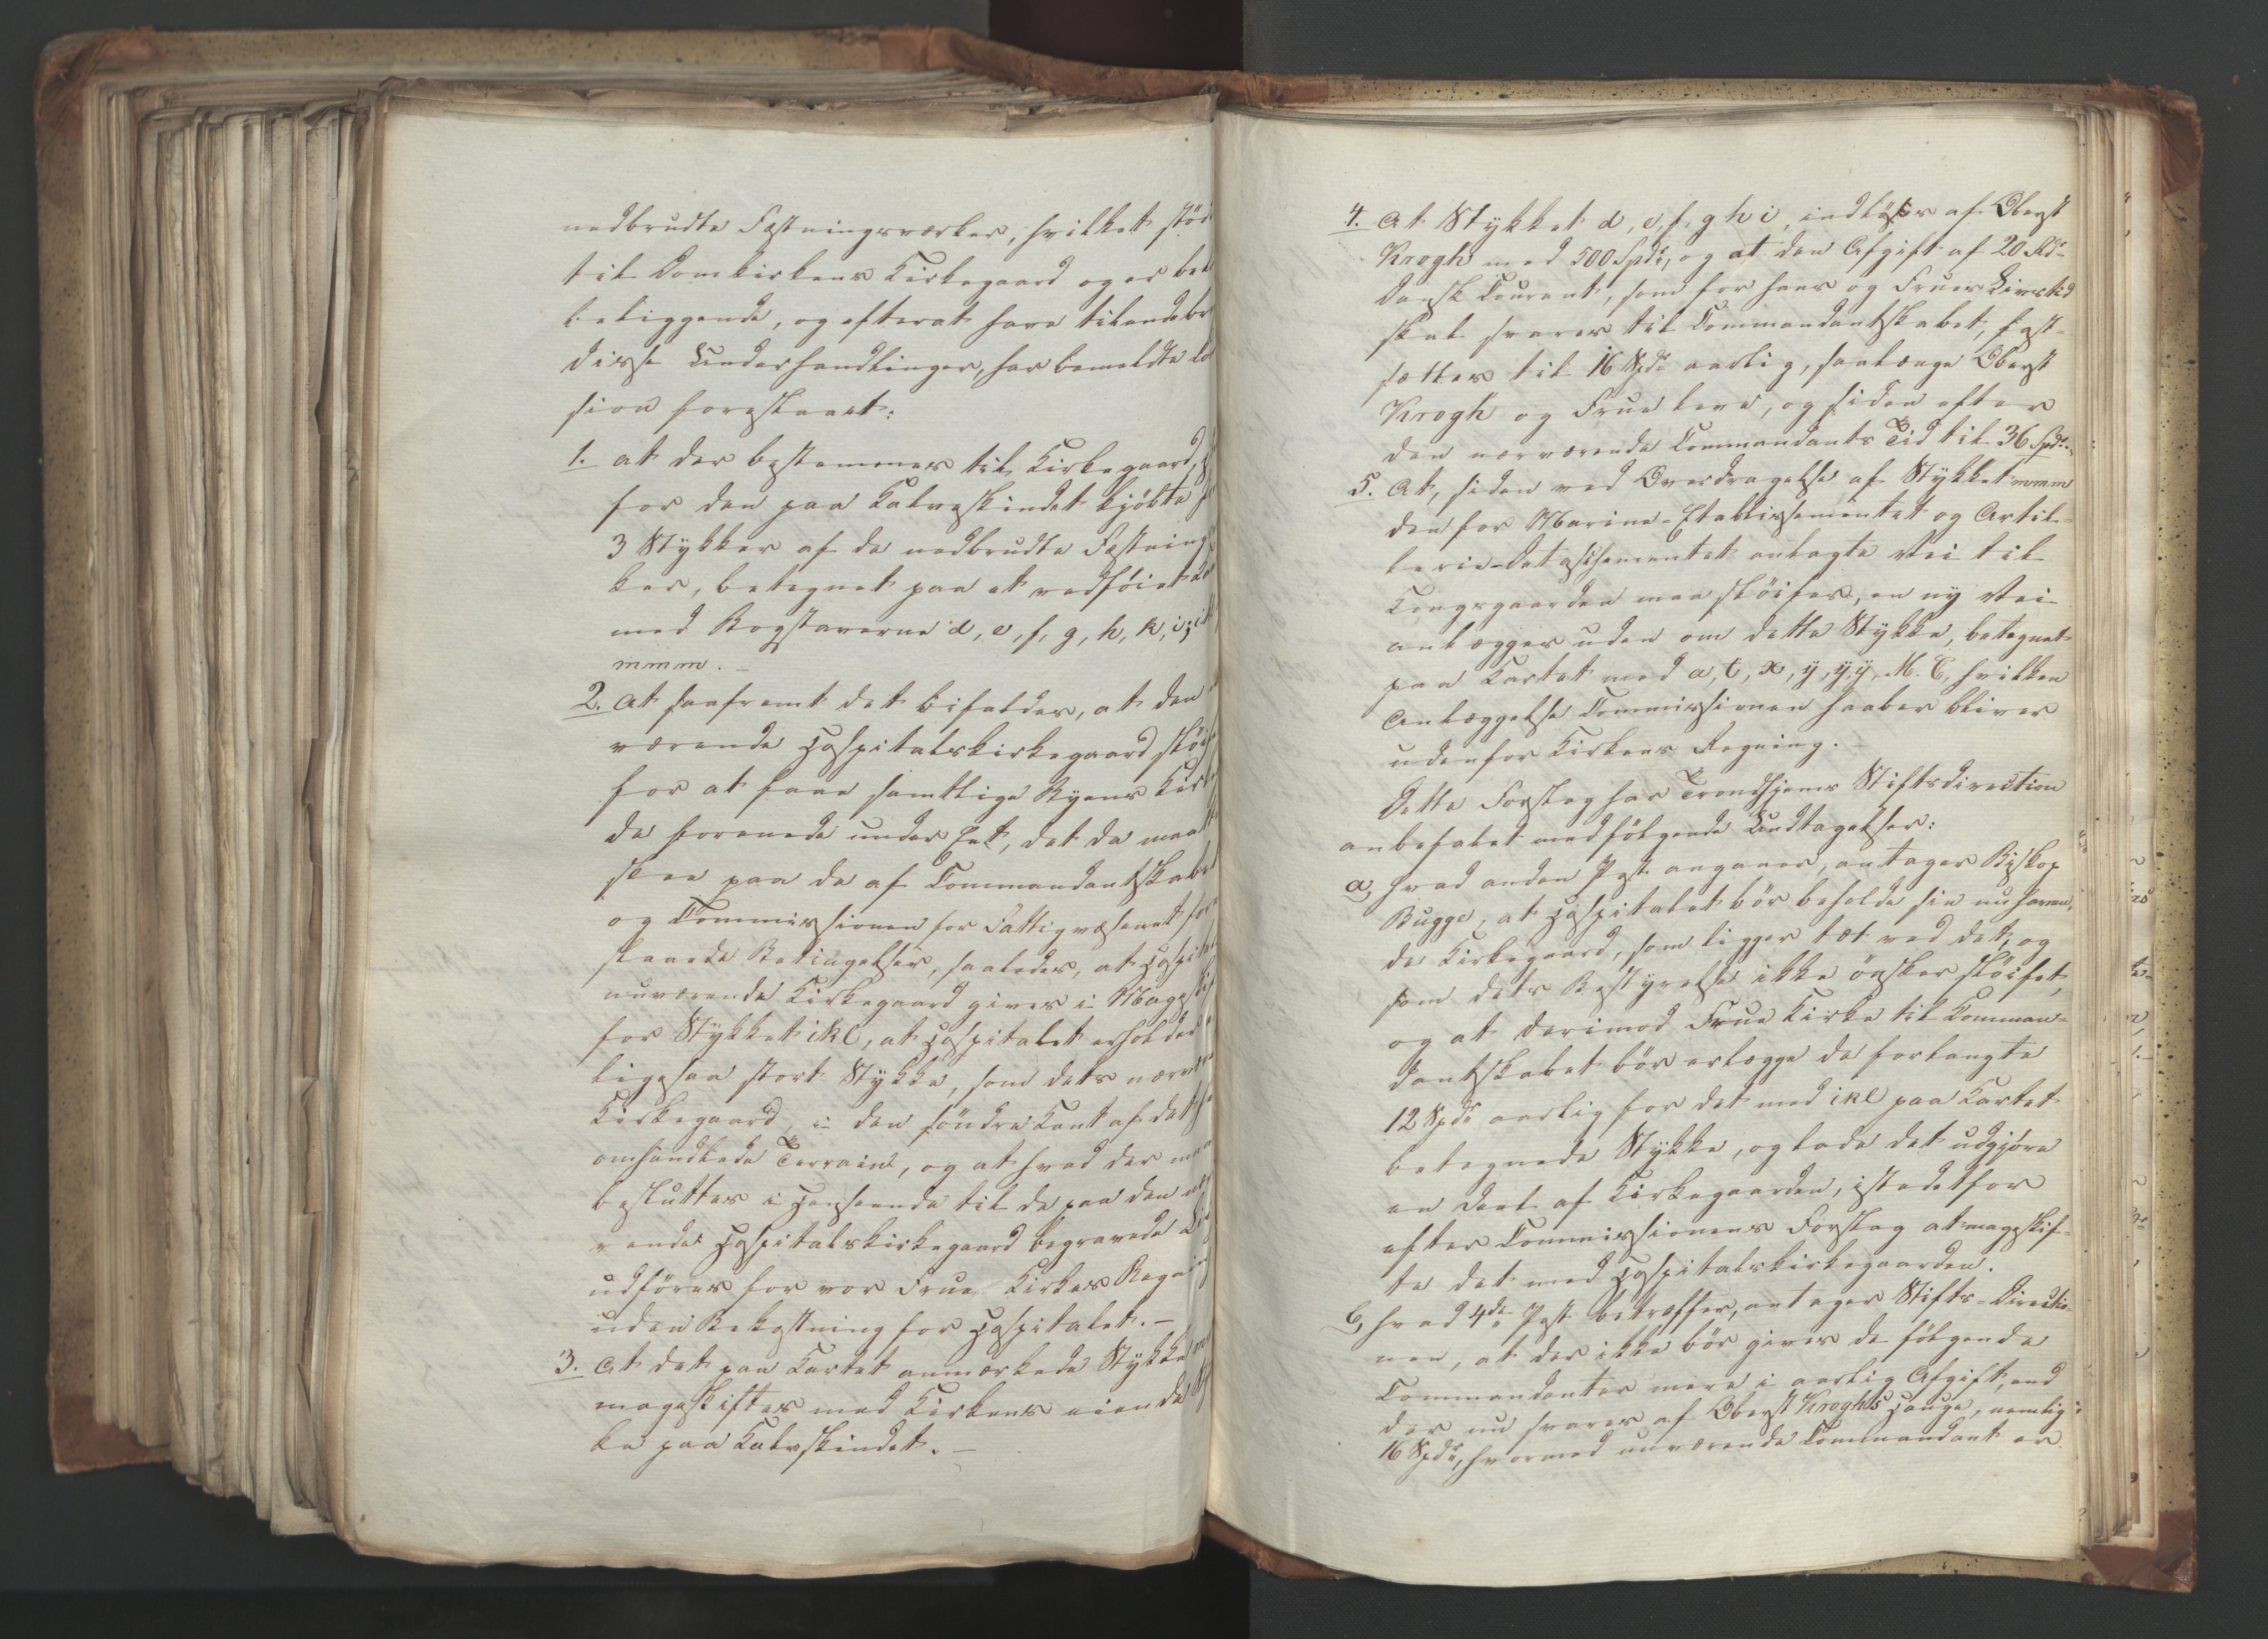 nedbrudte Fæstningsværker, hvilket stød
til Domkirkens Kirkegaard og er bek
beliggende, og efterat have tilendebr
disse Underhandlinger, har bemeldte Co
sion foreslaaet:
1. at der bestemmes til Kirkegaard,
for den paa Kalveskindet kjøbte
3 Stykker af de nedbrudte Fæstning
ker, betegnet paa et vedføiet
med Bogstaverne d, e, f, g, h, k, i;
mmm. –
2. at saafremt det bifaldes, at den
værende Hospitalskirkegaard sløif
for at faae samtlige Byens Kir
de forenede under Eet, det da maatte
skee paa de af Commandantskabet
og Commissionen for Fattigvæsenet fore
slaaede Betingelser, saaledes, at Hospital
nuværende Kirkegaard gives i Mageskif
for Stykket ikl, at Hospitalet erholder
ligesaa stort Stykke, som dets nærvær
Kirkegaard, i den søndre Kant af det
omhandlede Terrain, og at hvad der maa
besluttes i Henseende til de paa den nu
rende Hospitalskirkegaard begravede Lig
udføres for vor Frue Kirkes Regning
uden Bekostning for Hospitalet. –
3. At det paa Kartet anmærkede Stykke
mageskiftes med Kirkens eiende
ke paa Kalvskindet. –
4. At Stykket d, e, f, g h i, indløses af Oberst
Krogh med 500 Spdr, og at den Afgift af 20 Rdr
dansk Courant, som for hans og Frues Livstid
skal svares til Commandantskabet, fast-
sættes til 16 Spdr aarlig, saalænge Oberst
Krogh og Frue leve, og siden efter
den nærværende Commandants Tid til 36 Spdr.
5. At, siden ved Overdragelse af Stykket mmm
den for Marine-Etablissementet og Artil-
lerie-Detaschementet anlagte Vei til
Kongsgaarden maa sløifes, en ny Vei
anlægges uden om dette Stykke, betegnet
paa Kartet med a, t, x, y, y, y, M. C, hvilken
Anlæggelse Commissionen haaber bliver
udenfor Kirkens Regning. –
Dette Forslag har Trondhjems Stiftsdirection
anbefalet med følgende Undtagelser:
a, hvad anden Post angaaer, antager Biskop
Bugge, at Hospitalet bør beholde sin nu haven-
de Kirkegaard, som ligger tæt ved det, og
som dets Bestyrelse ikke ønsker sløifet,
og at derimod Frue Kirke til Comman-
dantskabet bør erlægge de forlangte
12 Spdr aarlig for det med ikl paa Kartet
betegnede Stykke, og lade det udgjøre
en Deel af Kirkegaarden, istedetfor
efter Commissionens Forslag at mageskif-
te det med Hospitalskirkegaarden.
b, hvad 4de Post betræffer, antager Stifts-Directio-
nen, at der ikke bør gives de følgende
Commandanter mere i aarlig Afgift, end
der nu svares af Oberst Kroghs Hauge, nemlig:
16 Spdr, hvormed nuværende Commandant er